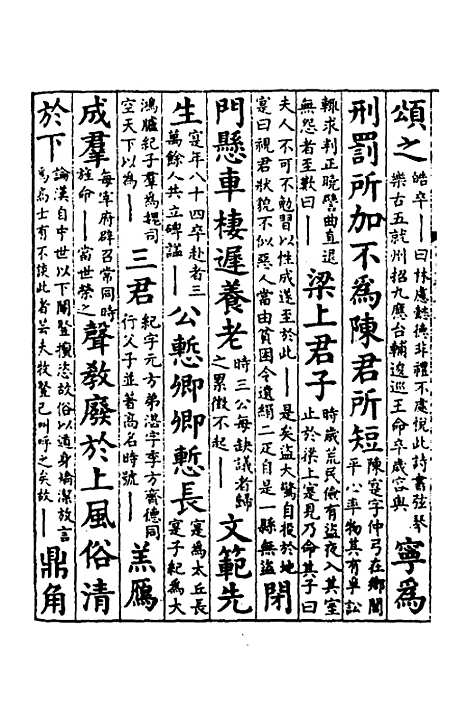 頌之皓卒——曰林慮懿德非禮不處悅此詩書弦琴樂古五就州招九應台輔逡巡王命卒歲容與寧為
刑罰所加不為陳君所短陳寔字仲弓在鄉閭平心率物其有爭訟
輒求判正曉譬曲直退無怨者至歎曰——梁上君子時歲荒民儉有盜夜入其室止於梁上寔見乃命其子曰
夫人不可不勉習以性成遂至於此——是矣盜大驚自投於地寔曰視君狀貌不似惡人當由貧困令遺絹二疋自是一縣無盜閉
門懸車棲遲養老時三公每缺議者歸之累徵不起——文範先
生寔年八十四卒赴者三萬餘人共立碑諡——公慙卿卿慙長寔為太丘長寔子紀為大
鴻臚紀子羣為魏司空天下以為——三君紀字元方弟諶字季方齊德同行父子並著高名時號——羔鴈
成羣每宰府辟召常同時旌命——當世榮之聲教廢於上風俗清
於下論漢自中世以下閹豎擅恣故俗以遁身矯潔放言為高士有不談此者芸夫牧豎已叫呼之矣故——鼎角